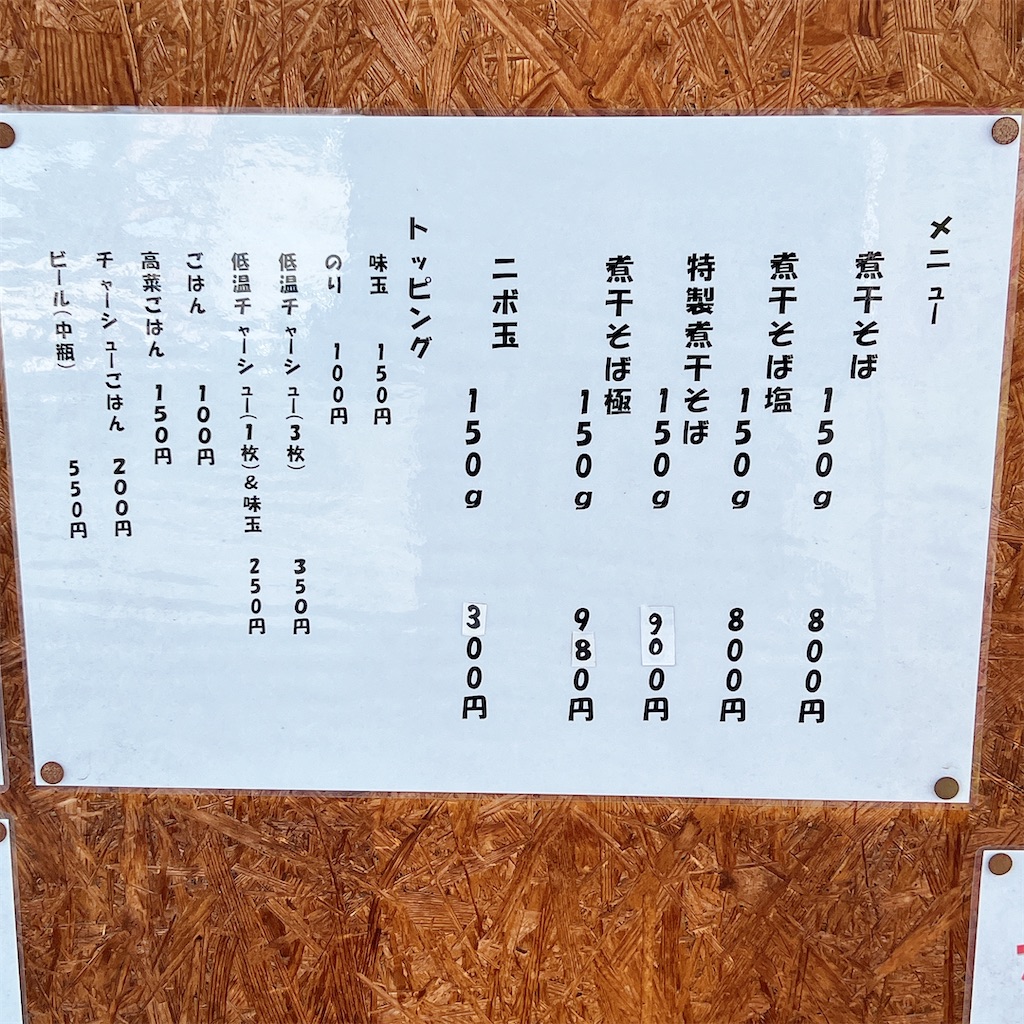 メニュー
煮干そば 150g 800円
煮干そば塩 150g 800円
特製煮干そば 150g 900円
煮干そば極 150g 980円
ニボ玉 150g 300円
トッピング
味玉 150円
のり 100円
低温チャーシュー(3枚) 350円
低温チャーシュー(1枚)&味玉 250円
ごはん 100円
高菜ごはん 150円
チャーシューごはん 200円
ビール(中瓶) 550円